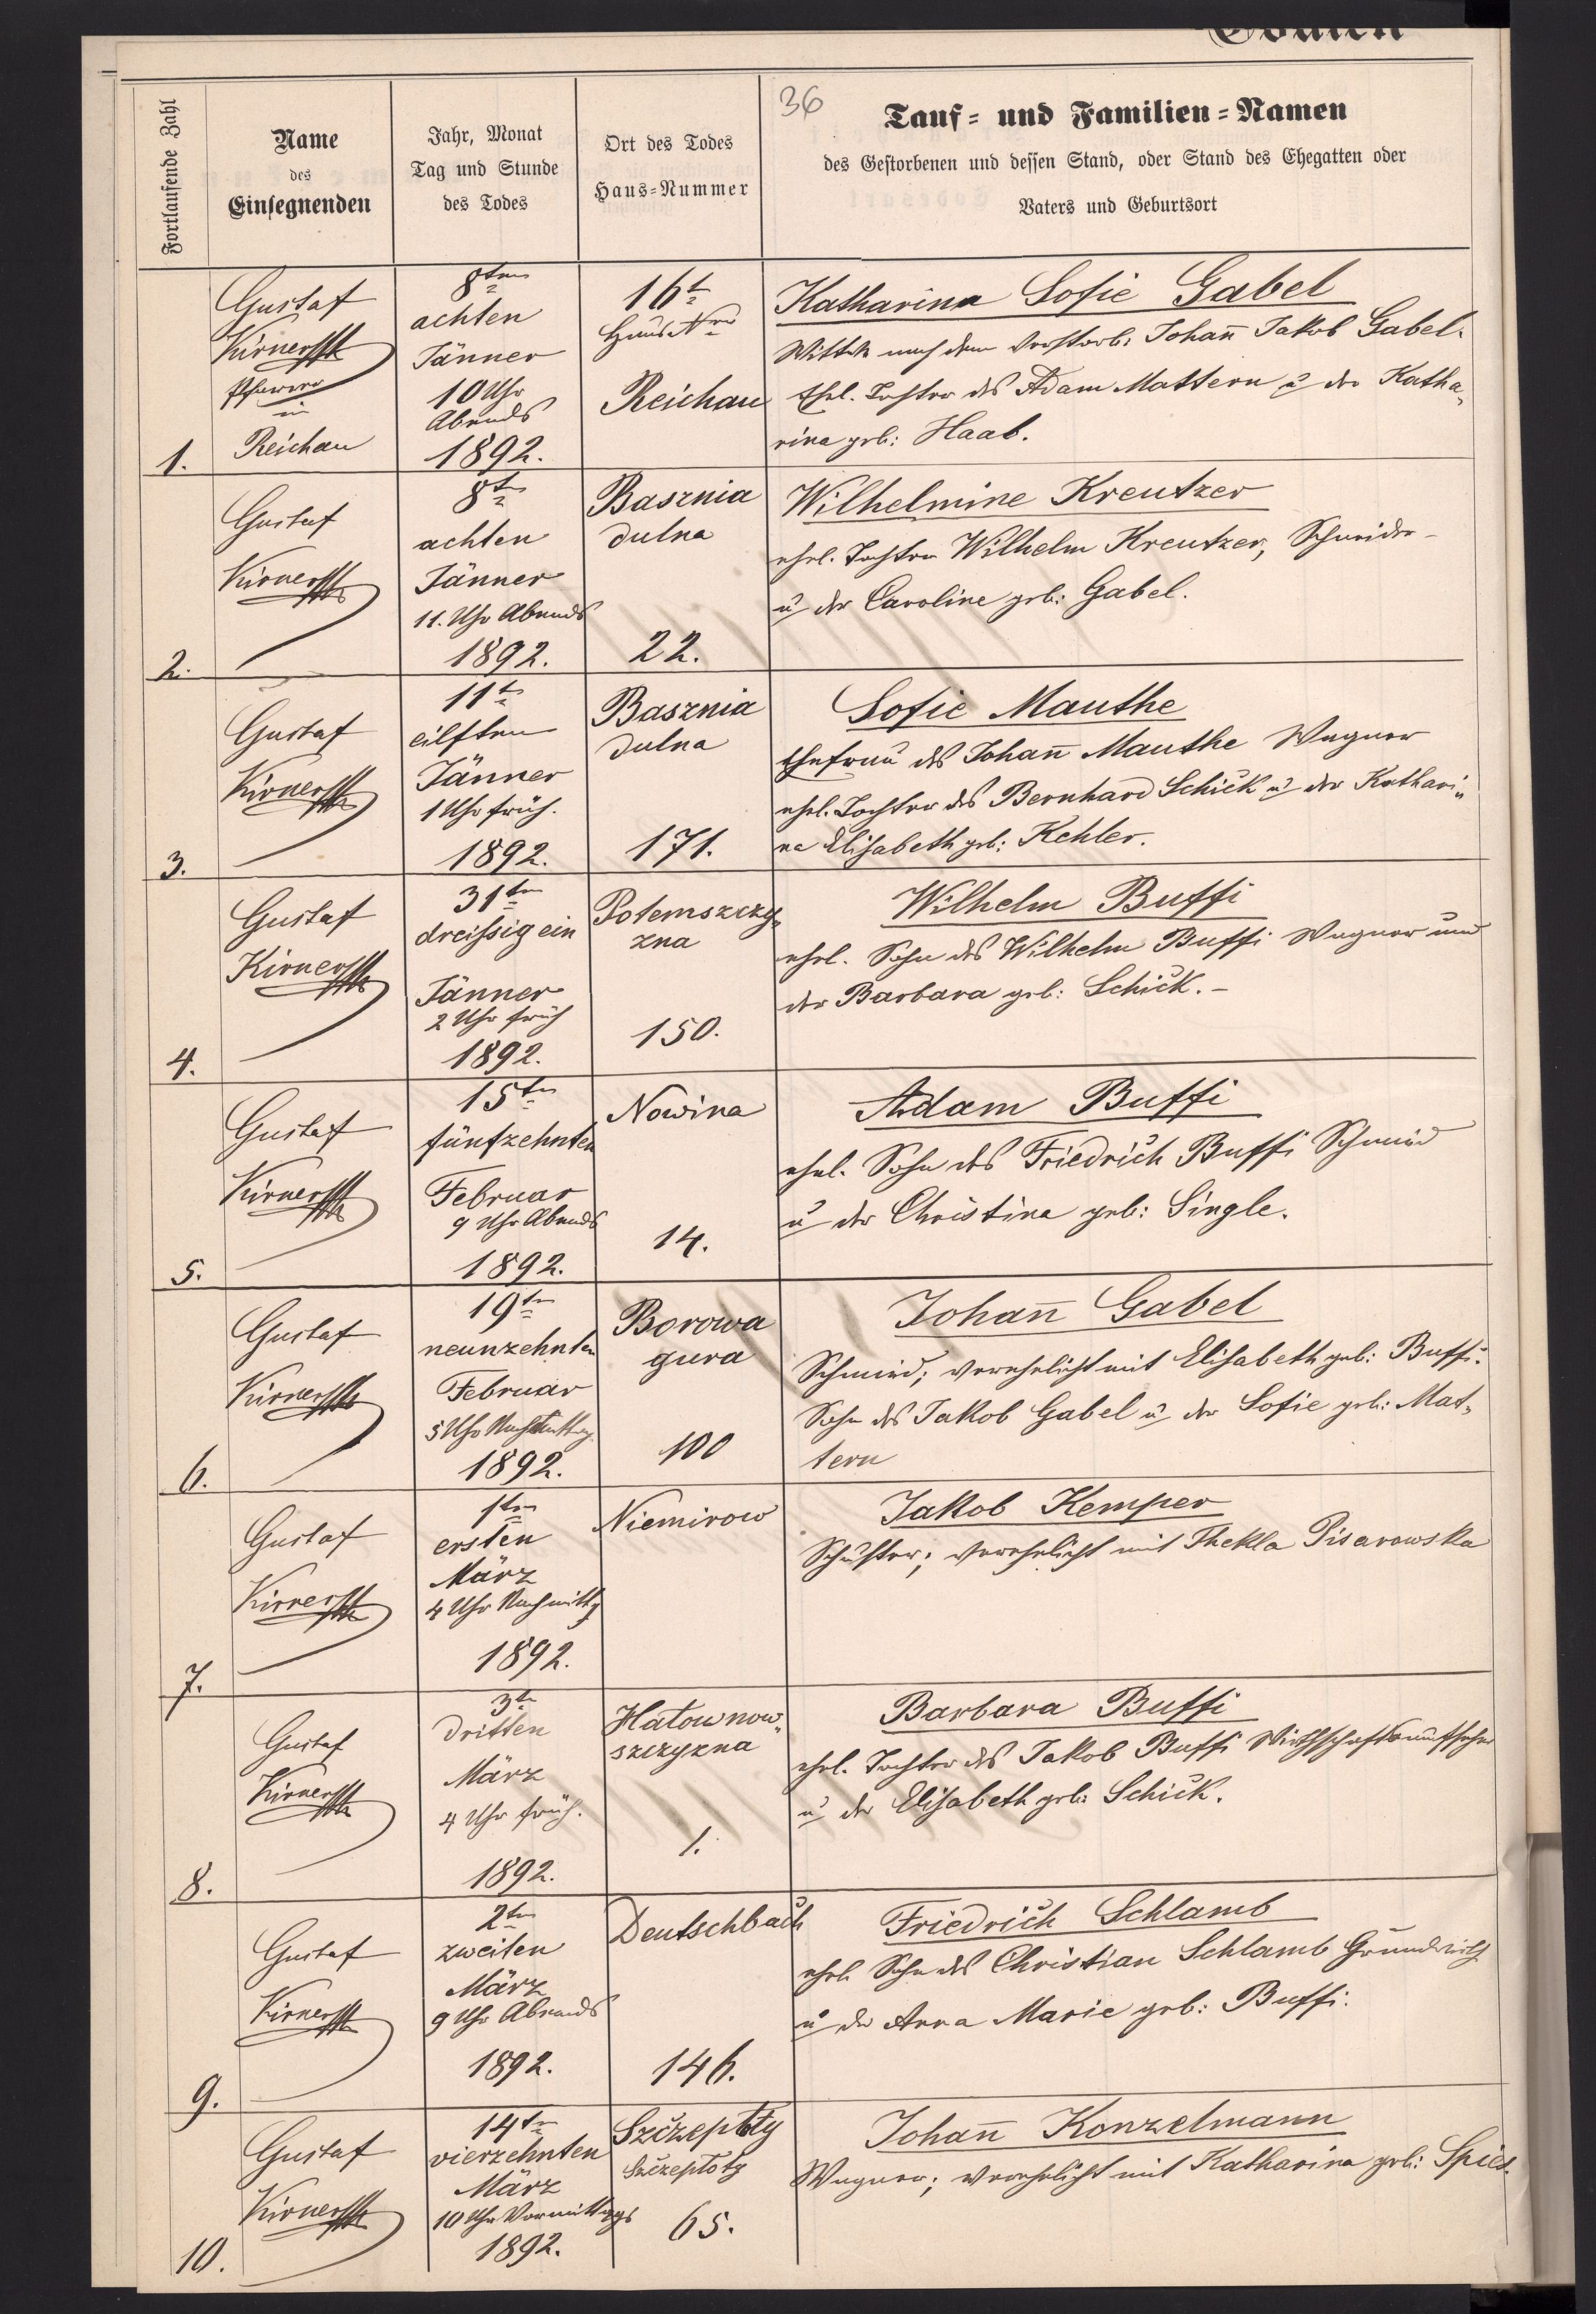 36
Fortlaufende Zahl
Name
des
Einsegnenden
Jahr, Monat
Tag und Stunde
des Todes
Ort des Todes
Haus=Nummer
Tauf= und Familien=Namen
des Gestorbenen und dessen Stand, oder Stand des Ehegatten oder
Vaters und Geburtsort
1.
Gustaf
Kirner
Pfarrer
in
Reichau
8ten
achten
Jänner
10 Uhr
Abends
1892.
16t
Haus Nro
Reichau
Katharina Sofie Gabel
Wittwe nach dem verstorb: Johan̄ Jakob Gabel.
Ehel. Tochter des Adam Mattern u der Katha„
rina geb: Haab.
2.
Gustaf
Kirner
8t
achten
Jänner
11. Uhr Abends
1892.
Basznia
dulna
22.
Wilhelmine Kreutzer
ehel. Tochter Wilhelm Kreutzer, Schneider –
u der Caroline geb: Gabel.
3.
Gustaf
Kirner
11t
eilften
Jänner
1 Uhr früh.
1892.
Basznia
dulna
171.
Sofie Mauthe
Ehefrau des Johan̄ Mauthe Wagner
ehel. Tochter des Bernhard Schick u der Kathari„
na Elisabeth geb: Kehler.
4.
Gustaf
Kirner
31ten
dreissig ein
Jänner
2 Uhr früh
1892.
Potemszczy„
zna
150.
Wilhelm Buffi
ehel. Sohn des Wilhelm Buffi Wagner und
der Barbara geb: Schick. –
5.
Gustaf
Kirner
15ten
fünfzehnten
Februar
9 Uhr Abends
1892.
Nowina
14.
Adam Buffi
ehel. Sohn des Friedrich Buffi Schmied
u der Christina geb: Single.
6.
Gustaf
Kirner
19ten
neunzehnten
Februar
5 Uhr Nachmittag
1892.
Borowa
gura
100
Johan̄ Gabel
Schmied; verehelicht mit Elisabeth geb: Buffi.
Sohn des Jakob Gabel u der Sofie geb: Mat„
tern
7.
Gustaf
Kirner
1ten
ersten
März
4 Uhr Nachmittg
1892.
Niemirow
Jakob Kemper
Schuster; verehelicht mit Thekla Pisarowska
8.
Gustaf
Kirner
3t
dritten
März
4 Uhr früh.
1892.
Hatownow„
szczyzna
1.
Barbara Buffi
ehel. Tochter des Jakob Buffi Wirthschaftsaufseher
u der Elisabeth geb: Schick.
9.
Gustaf
Kirner
2ten
zweiten
März
9 Uhr Abends
1892.
Deutschbach
146.
Friedrich Schlamb
ehel. Sohn des Christian Schlamb Grundwirth
u der Anna Marie geb: Buffi.
10.
Gustaf
Kirner
14ten
vierzehnten
März
10 Uhr Vormittags
1892.
Szczeptoty
Szczeptoty
65.
Johan̄ Konzelmann
Wagner; verehelicht mit Katharina geb: Spies.